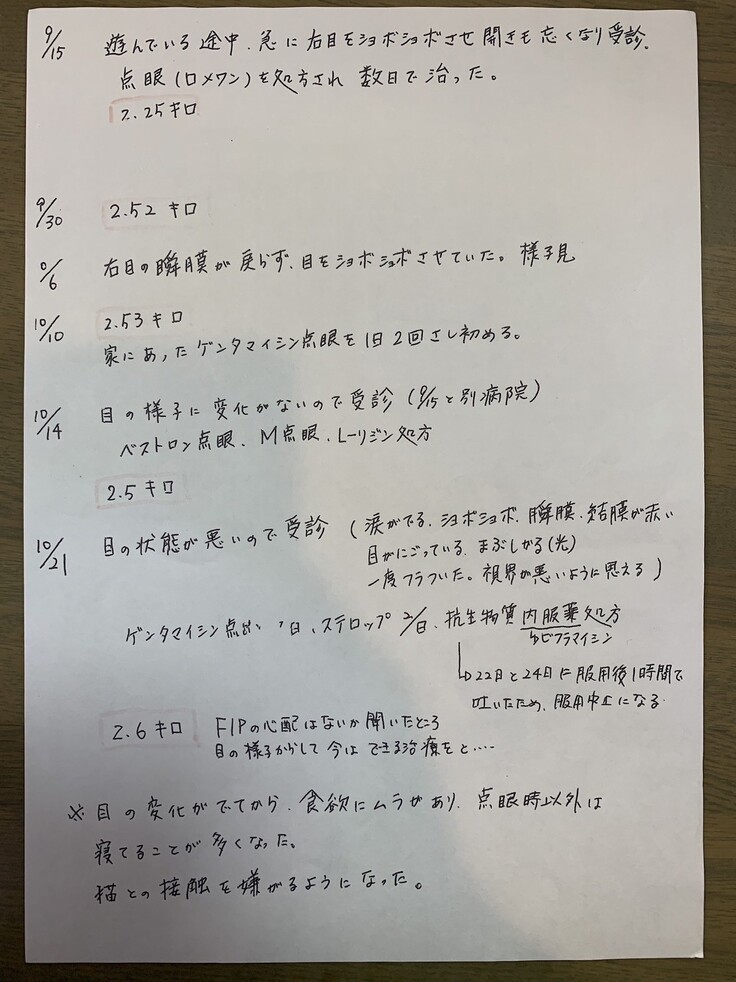 9/15 遊んでいる途中、急に右目をショボショボさせ開きも悪くなり受診。
点眼(ロメワン)を処方され数日で治った。
2.25キロ
9/30 2.52キロ
0/6 右目の瞬膜が戻らず、目をショボショボさせていた。様子見
10/10 2.53キロ
家にあったゲンタマイシン点眼を1日2回さし初める。
10/14 目の様子に変化がないので受診(9/15と別病院)
ベストロン点眼、M点眼、L-リジン処方
2.5キロ
10/21 目の状態が悪いので受診(涙がでる、ショボショボ、瞬膜、結膜が赤い
目がにごっている、まぶしがる(光)
一度フラついた。視界が悪いように思える)
ゲンタマイシン点 日、ステロップ 2/日、抗生物質内服薬処方
ビブラマイシン
22日と24日に服用後1時間で
吐いたため、服用中止になる。
2.6キロ FIPの心配はないか聞いたところ
目の様子からして今はできる治療をと....
※目の変化がでてから、食欲にムラがあり、点眼時以外は
寝てることが多くなった。
猫との接触を嫌がるようになった。